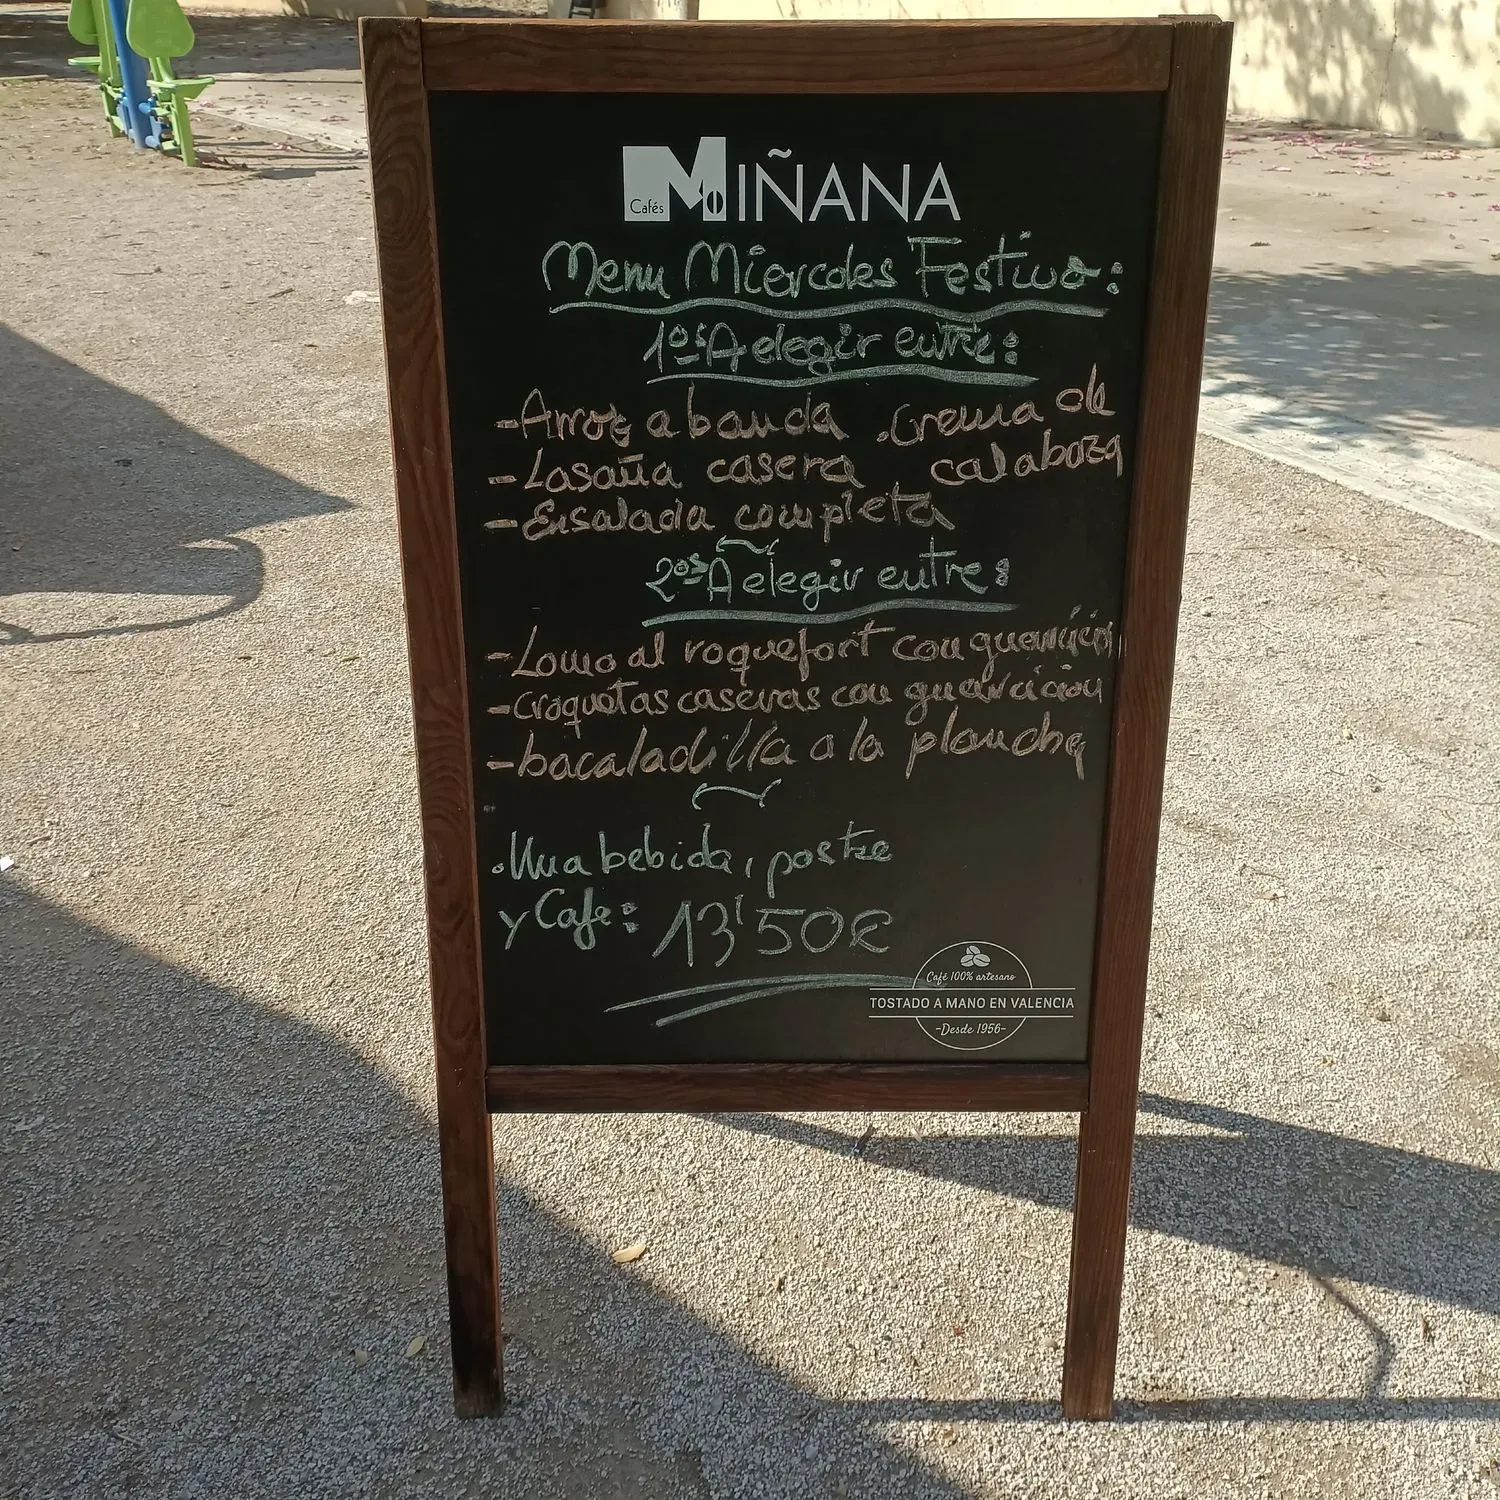 Cafés MIÑANA
Menu Miercoles Festivo:
1os A elegir entre:
-Arroz a banda .Crema de
calabaza
-Lasaña casera
-Ensalada completa
2os A elegir entre:
-Lomo al roquefort con guarnición
-croquetas caseras con guarnicion
-bacaladilla a la plancha
.Una bebida, postre
y Cafe: 13'50€
Café 100% artesano
TOSTADO A MANO EN VALENCIA
-Desde 1956-